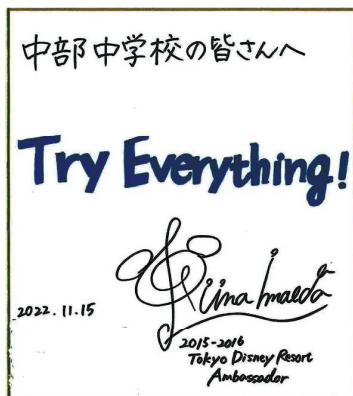 中部中学校の皆さんへ
Try Everything!
Riina Imaeda
2022.11.15
2015-2016
Tokyo Disney Resort
Ambassador